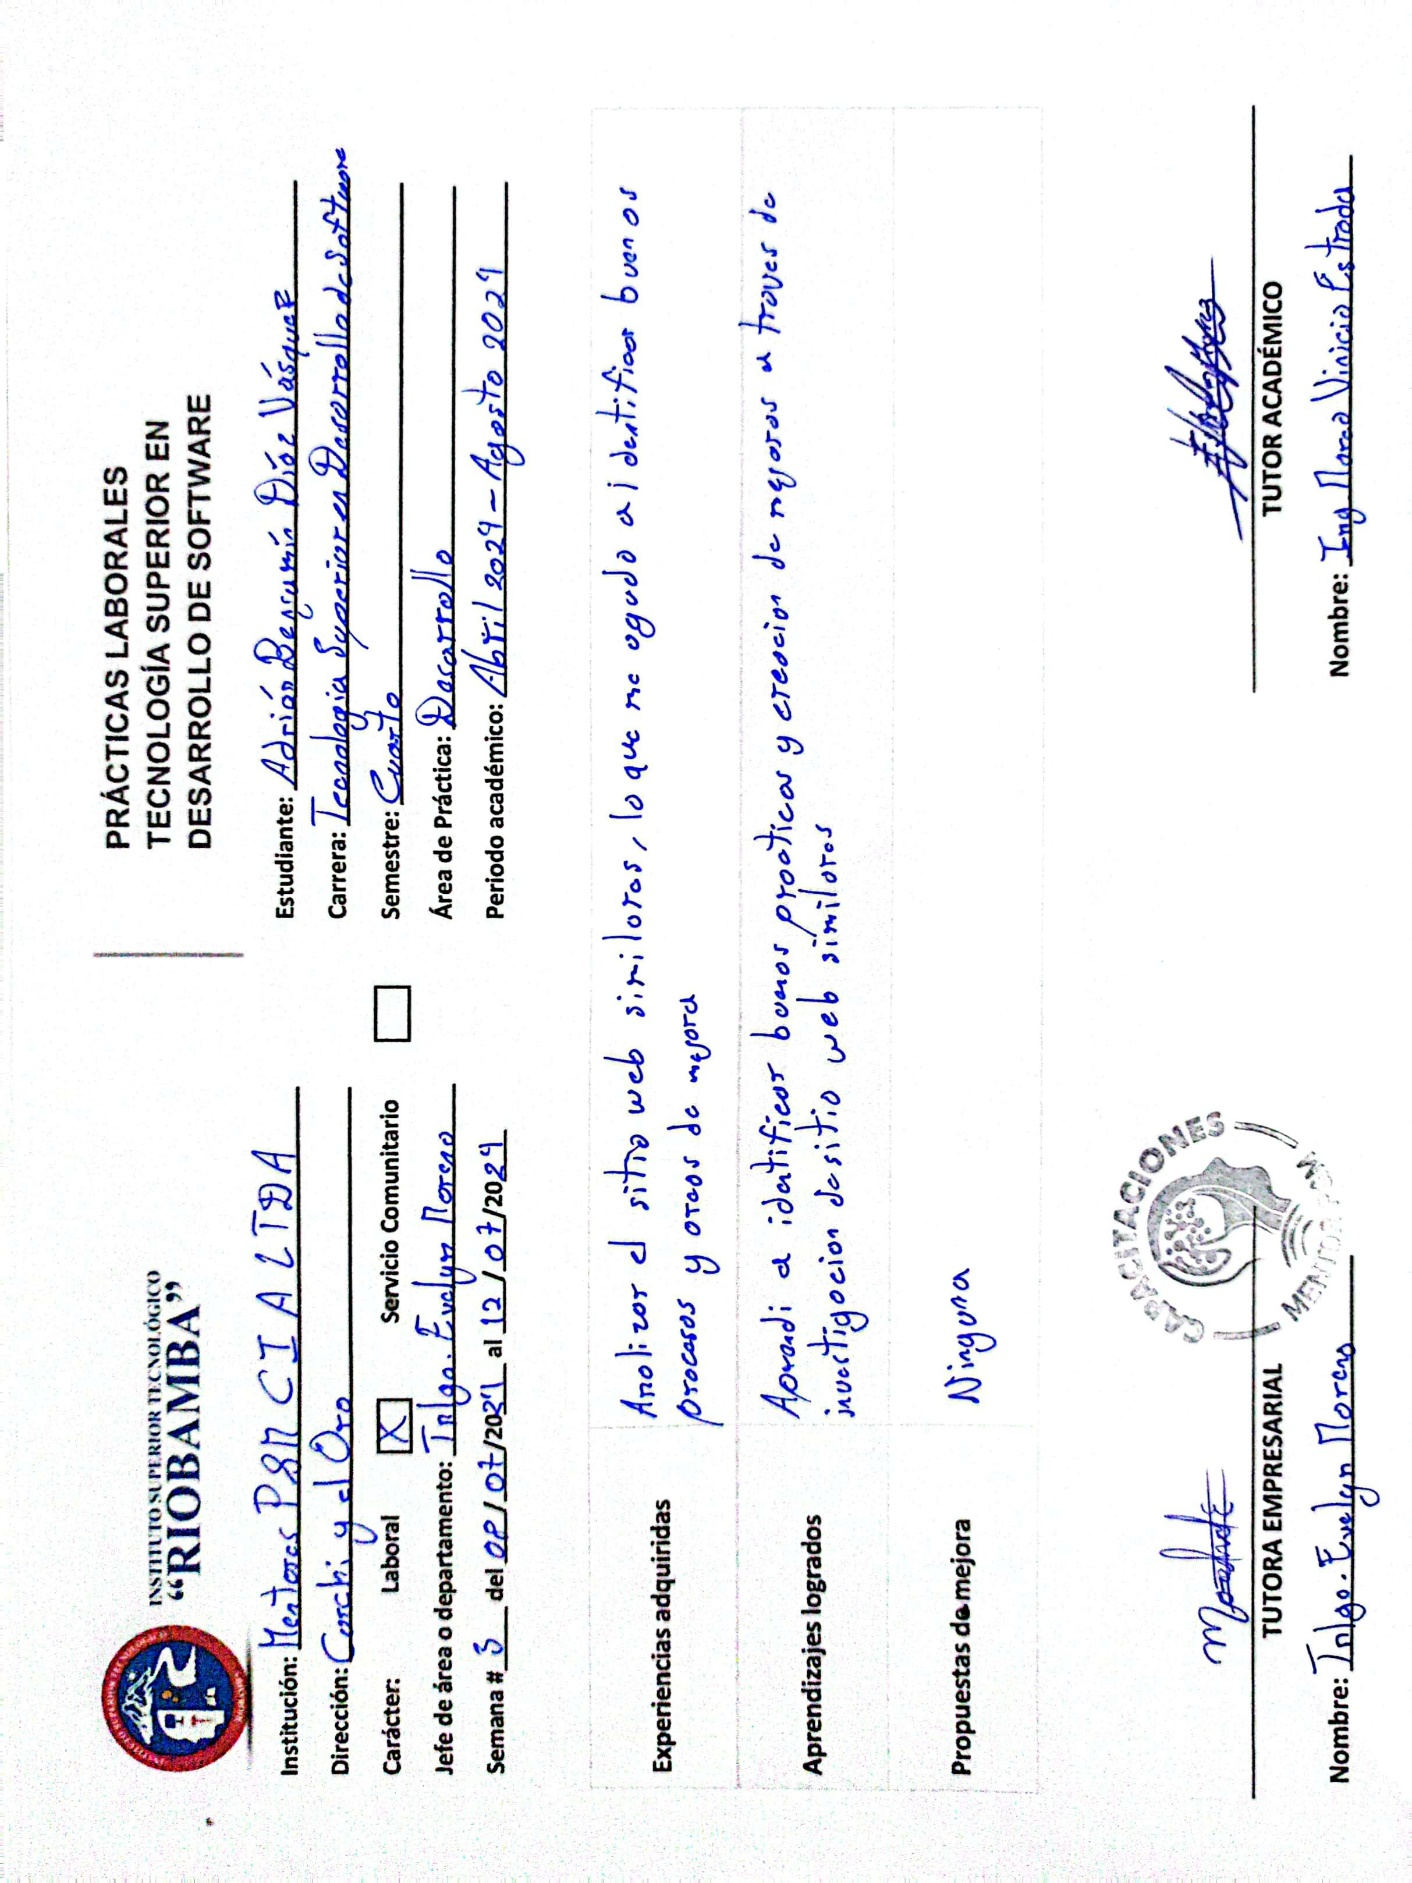 INSTITUTO SUPERIOR TECNOLÓGICO
“RIOBAMBA”
PRÁCTICAS LABORALES
TECNOLOGÍA SUPERIOR EN
DESARROLLO DE SOFTWARE
Institución: Mentores PSM CIA LTDA
Dirección: Carchi y el Oro
Carácter: Laboral X Servicio Comunitario
Jefe de área o departamento: Tnlgo. Evelyn Moreno
Semana # 3 del 08/07/2024 al 12/07/2024
Estudiante: Adrián Benjamín Díaz Vásquez
Carrera: Tecnología Superior en Desarrollo de Software
Semestre: Cuarto
Área de Práctica: Desarrollo
Periodo académico: Abril 2024 - Agosto 2024
Experiencias adquiridas
Analizar el sitio web similares, lo que me ayudo a identificar buenos
procesos y areas de mejora
Aprendizajes logrados
Aprendi a identificar buenas practicas y creacion de mejoras a traves de
investigacion de sitio web similares
Propuestas de mejora
Ninguna
CAPACITACIONES
TUTORA EMPRESARIAL
Nombre: Tnlgo. Evelyn Moreno
TUTOR ACADÉMICO
Nombre: Ing Marco Vinicio Estrada